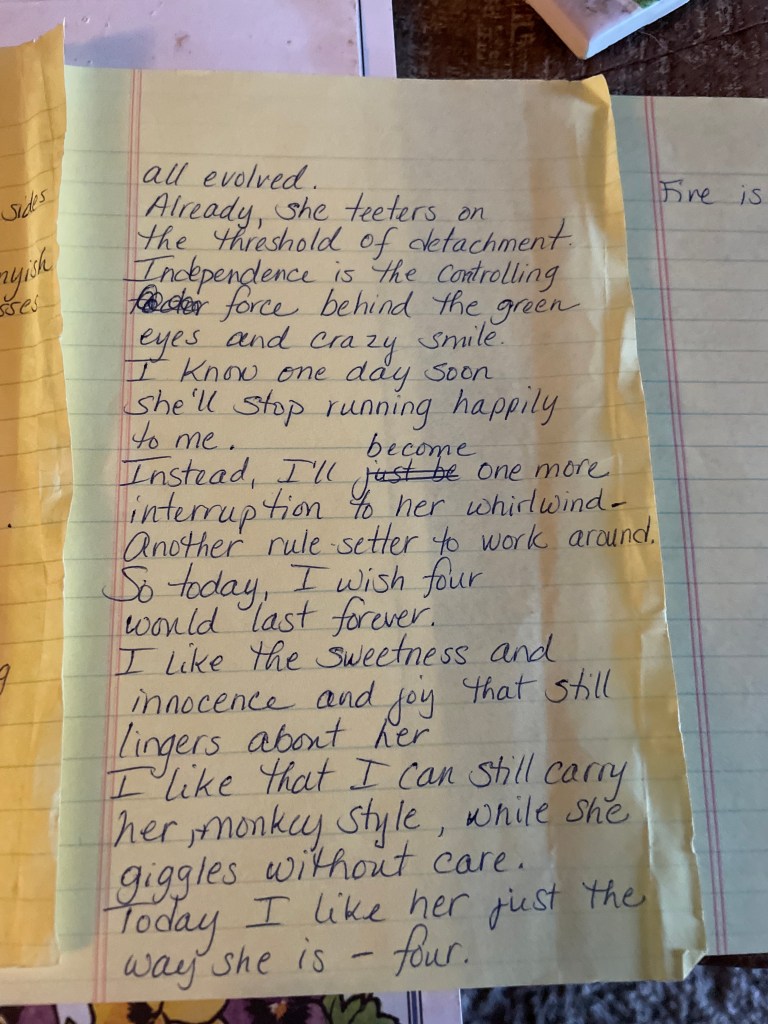 all evolved.
Already, she teeters on
the threshold of detachment.
Independence is the controlling
force behind the green
eyes and crazy smile.
I know one day soon
she'll stop running happily
to me.
become
Instead, I'll just be one more
interruption to her whirlwind-
Another rule-setter to work around.
So today, I wish four
would last forever.
I like the sweetness and
innocence and joy that still
lingers about her
I like that I can still carry
her, monkey style, while she
giggles without care.
Today I like her just the
way she is - four.
sides
nyish
sses
g
Five is